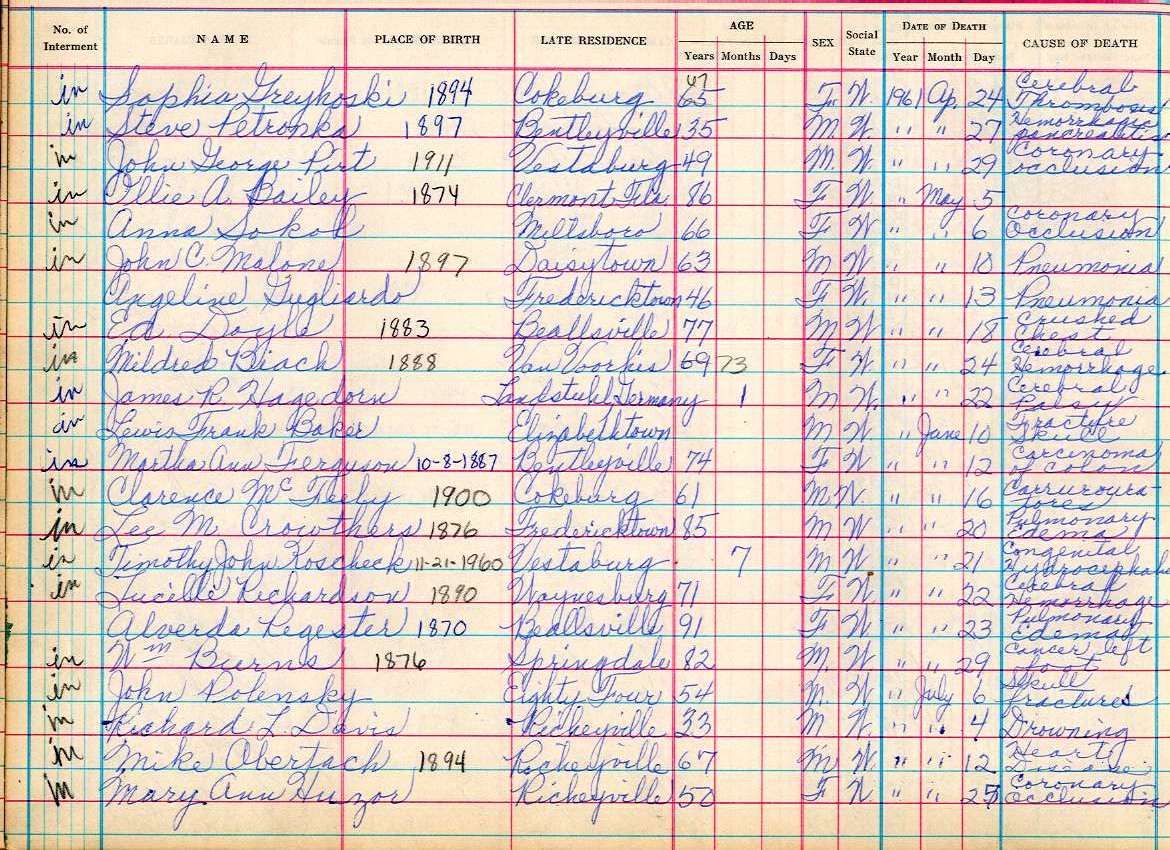 No. of Interment NAME PLACE OF BIRTH LATE RESIDENCE AGE Years Months Days SEX Social State DATE OF DEATH Year Month Day CAUSE OF DEATH
in Sophia Greyhoski 1894 Cokeburg 65 67 F. W. 1961 Ap. 24 Cerebral Thrombosis
in Steve Petronka 1897 Bentleyville 35 M. W. " " 27 Hemorrhagic pancreatitis
in John George Pirt 1911 Vestaburg 49 M. W. " " 29 Coronary occlusion
in Ollie A. Bailey 1874 Clermont Fla 86 F W. " May 5
in Anna Sokol Millsboro 66 F W " " 6 Coronary Occlusion
in John C. Malone 1897 Daisytown 63 M W " " 10 Pneumonia
Angeline Gugliardo Fredericktown 46 F W. " " 13 Pneumonia
in Ed Doyle 1883 Beallsville 77 M W. " " 18 Crushed Chest
in Mildred Biach 1888 Van Voorhis 69 73 F W. " " 24 Cerebral Hemorrhage
in James R. Hagedorn Landstuhl Germany 1 M W. " " 22 Cerebral Palsy
in Lewis Frank Baker Elizabethtown M W. " June 10 Fracture Skull
in Martha Ann Ferguson 10-8-1887 Bentleyville 74 F W. " " 12 Carcinoma of Colon
in Clarence McFeeby 1900 Cokeburg 61 M. W. " " 16
in Lee M. Crowthers 1876 Fredericktown 85 M W. " " 20 Pulmonary Edema
in Timothy John Koscheck 11-21-1960 Vestaburg 7 M W. " " 21 Congenital Hydrocephalu
in Lucille Richardson 1890 Waynesburg 71 F W. " " 22 Cerebral Hemorrhage
Alverda Regester 1870 Beallsville 91 F W. " " 23 Pulmonary Edema
in Wm Burns 1876 Springdale 82 M. W. " " 29 Cancer left foot
in John Polensky Eighty Four 54 M. W. " July 6 Skull fractures
in Richard L. Davis Richeyville 33 M W. " " 4 Drowning
in Mike Obertach 1894 Richeyville 67 M W " " 12 Heart Disease
in Mary Ann Huzor Richeyville 50 F W " " 25 Coronary Occlusion